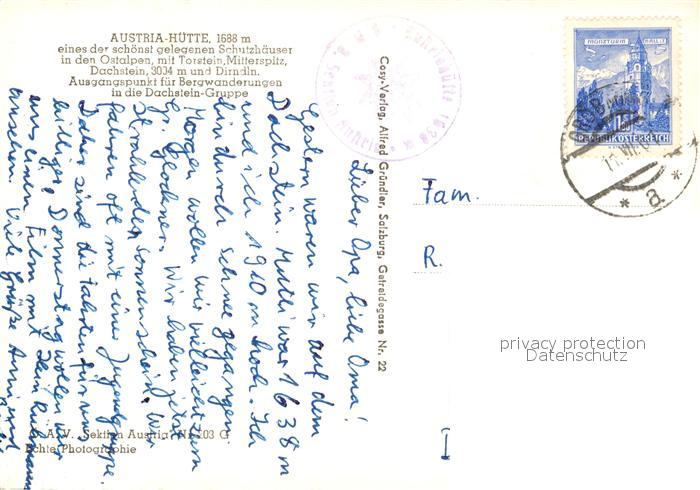 AUSTRIA-HÜTTE, 1688 m
eines der schönst gelegenen Schutzhäuser
in den Ostalpen, mit Torstein, Mitterspitz,
Dachstein, 3004 m und Dirndln.
Ausgangspunkt für Bergwanderungen
in die Dachstein-Gruppe
Lieber Opa, liebe Oma!
Gestern waren wir auf dem
Dachstein. Mutti war 1638 m
und ich 1910 m hoch. Ich
bin durch Schnee gegangen.
Morgen wollen wir vielleicht zum
Gr. Glockner. Wir haben jetzt
Strahlenden Sonnenschein. Wir
fahren oft mit einer Jugendgruppe.
Daher sind die Fahrten für uns
billiger. Donnerstag wollen wir
uns einen Film mit Heinz Rühmann
ansehen. Viele Grüße
Cosy-Verlag, Alfred Gründler, Salzburg, Getreidegasse Nr. 22
Ö. A. V. Sektion Austria Nr. 103 G
Echte Photographie
MÜNZTURM HALL i. T.
REPUBLIK ÖSTERREICH
a
Fam.
R.
I
privacy protection
Datenschutz